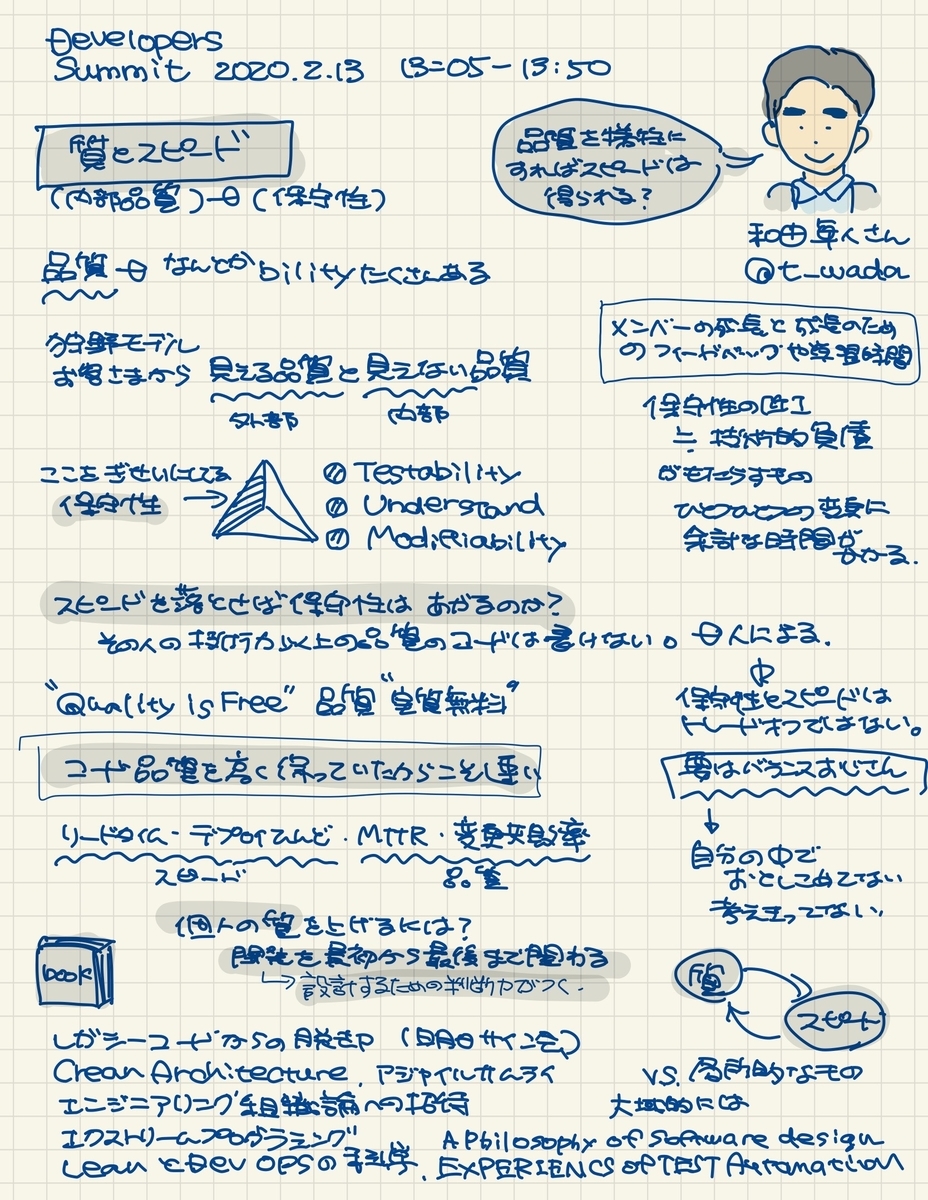 Developers
Summit 2020.2.13 13:05-13:50
質とスピード
(内部品質) (保守性)
品質を犠牲に
すればスピードは
得られる?
和田卓人さん
@t_wada
品質 なんとかbilityたくさんある
狩野モデル
お客さまから 見える品質と見えない品質
外部 内部
メンバーの成長と成長のため
のフィードバックや学習時間
ここをぎせいにしてる
保守性
Testability
Understand
Modifiability
保守性の
≒ 技術的負債
がもたらすもの
ひとつひとつの変更に
余計な時間が
かかる.
スピードを落とせば保守性はあがるのか?
その人の技術力以上の品質のコードは書けない。 人による.
保守性とスピードは
トレードオフではない。
"Quality is Free" 品質"実質無料"
コード品質を高く保っていたからこそ
要はバランスおじさん
自分の中で
おとしこめてない
考えきってない.
リードタイム・デプロイひんど・MTTR・変更失敗率
スピード 品質
個人の質を上げるには?
開発を最初から最後まで関わる
設計するための判断力がつく.
book
質
スピード
レガシーコードからの脱却 (明日サイン会)
Crean Architecture. アジャイルサムライ
エンジニアリング組織論への招待
エクストリームプログラミング
LeanとDevOPSの科学.
vs. 局所的なもの
大域的には
A Philosophy of Software design
EXPERIENCS of TEST Automation